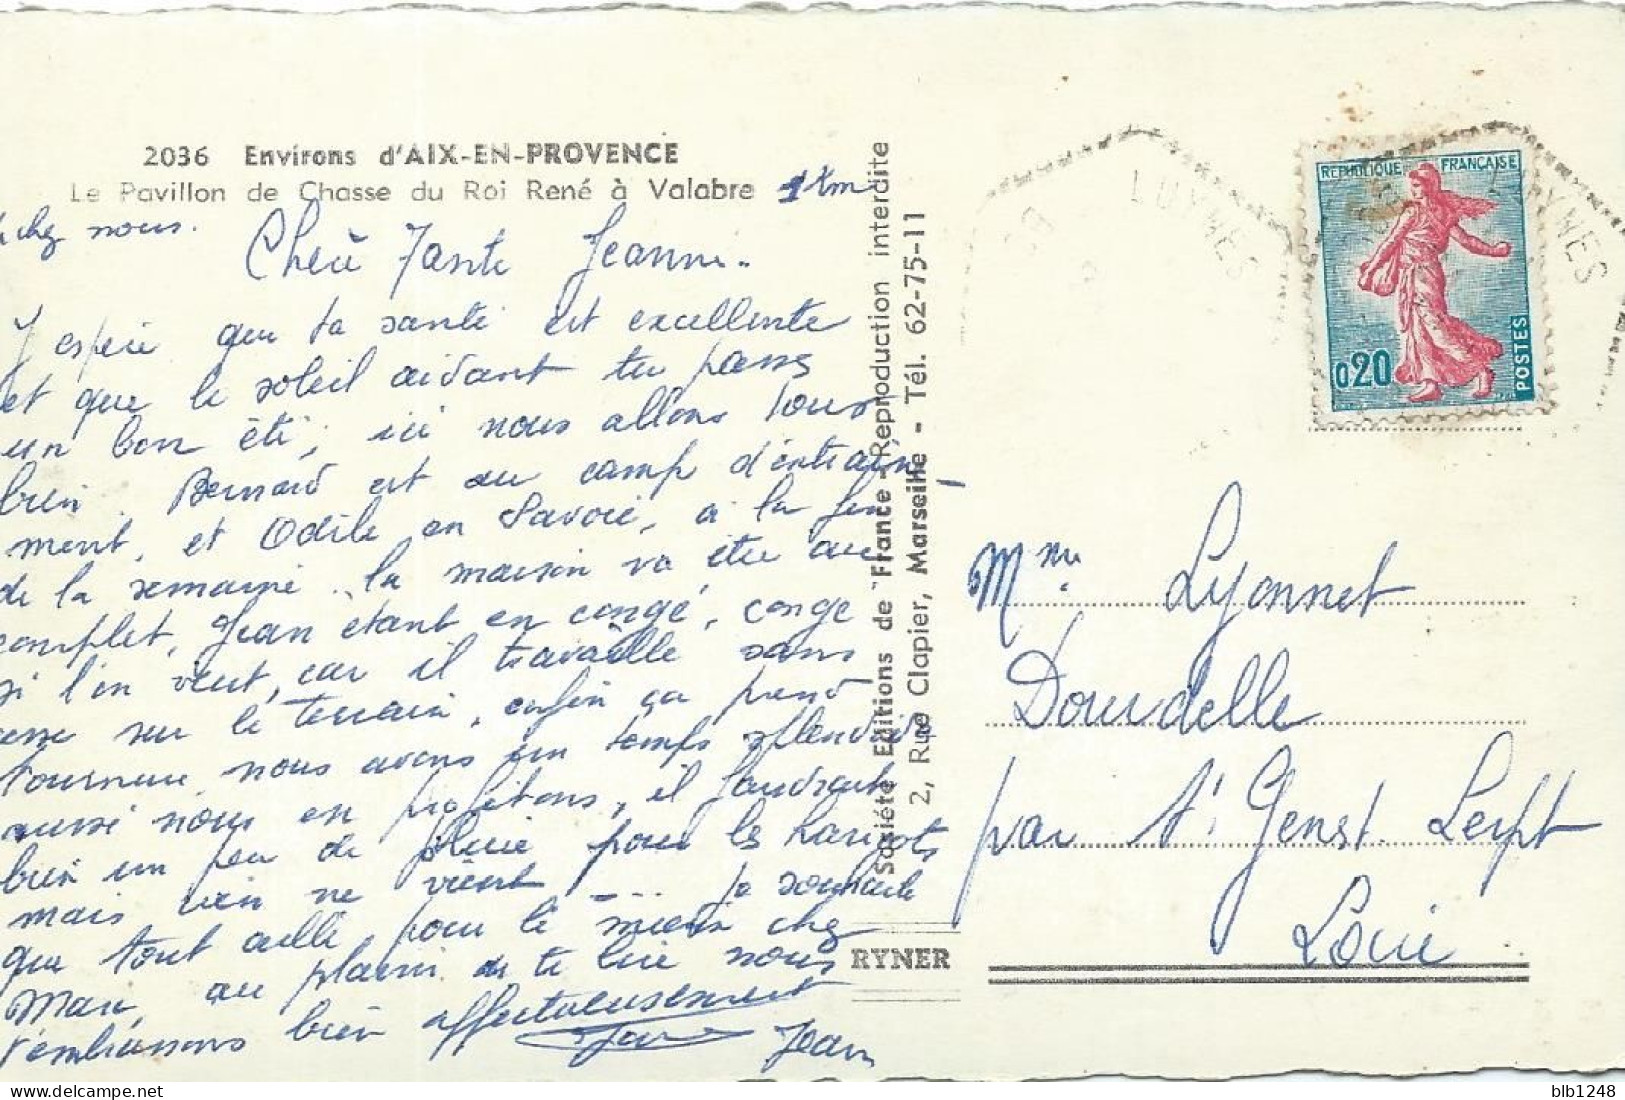 2036 Environs d'AIX-EN-PROVENCE
Le Pavillon de Chasse du Roi René à Valabre 1 km
chez nous.
Chère Tante Jeanne.
J'espère que ta santé est excellente
et que le soleil aidant tu passes
un bon été; ici nous allons tous
bien. Bernard est au camp d'entraîne-
ment, et Odile en Savoie, à la fin
de la semaine la maison va être au
complet, Jean étant en congé, congé
si l'on veut, car il travaille sans
sur le terrain, enfin ça prend
tournure, nous avons un temps splendide
aussi nous en profitons, il faudrait
bien un peu de pluie pour les haricots
mais rien ne vient .... je souhaite
que tout aille pour le mieux chez
au plaisir de te lire nous
t'embrassons bien affectueusement
Jean
Société Editions de France - Reproduction interdite
2, Rue Clapier, Marseille - Tél. 62-75-11
RYNER
LUYNES
REPUBLIQUE FRANÇAISE
0,20
POSTES
LUYNES
Mme Lyonnet
Dourdelle
par St Genest Lerpt
Loire
blb1248